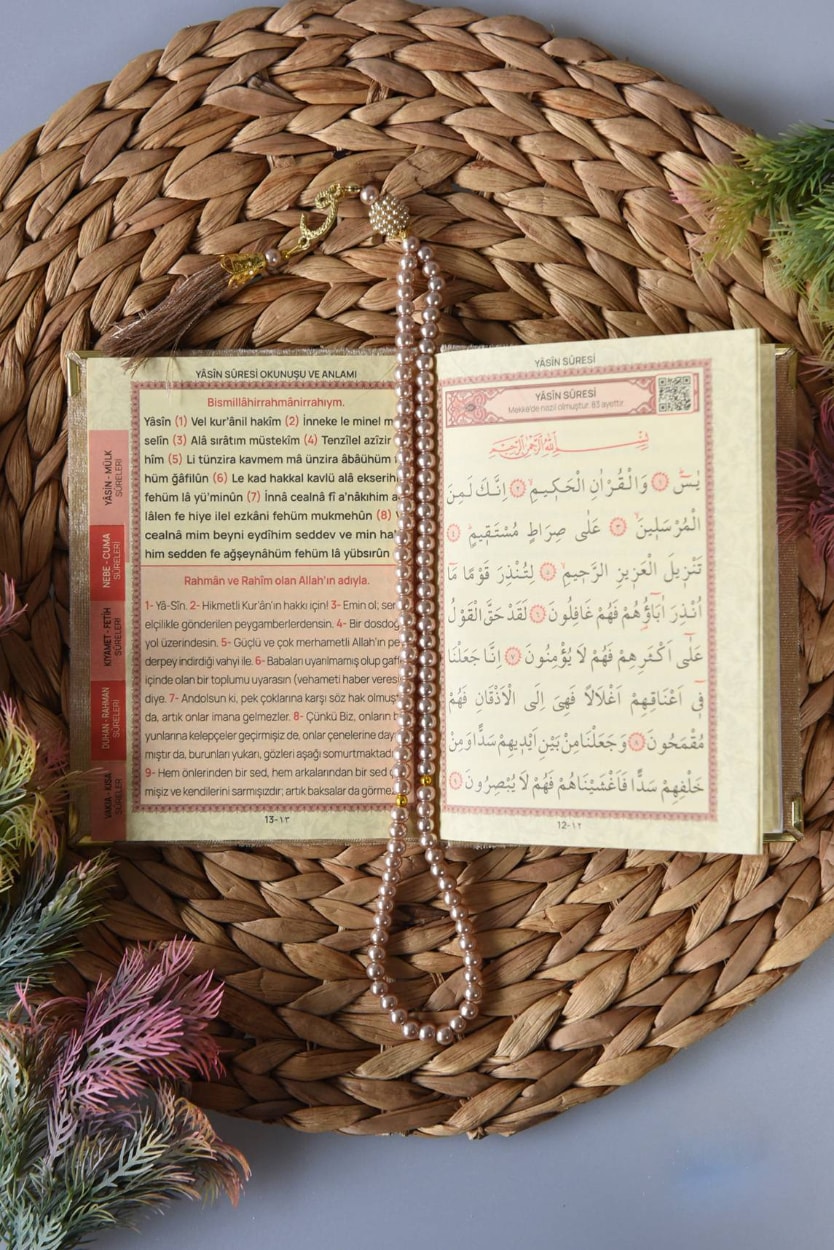 YÂSÎN SÛRESİ
YÂSÎN SÛRESİ
Mekke'de nazil olmuştur. 83 ayettir.
بِسْمِ اللهِ الرَّحْمٰنِ الرَّحِيمِ
يٰسٓ ﴿١﴾ وَالْقُرْاٰنِ الْحَكِيمِ ﴿٢﴾ اِنَّكَ لَمِنَ
الْمُرْسَلِينَ ﴿٣﴾ عَلٰى صِرَاطٍ مُسْتَقِيمٍ ﴿٤﴾
تَنْزِيلَ الْعَزِيزِ الرَّحِيمِ ﴿٥﴾ لِتُنْذِرَ قَوْمًا مَٓا
اُنْذِرَ اٰبَٓاؤُ۬هُمْ فَهُمْ غَافِلُونَ ﴿٦﴾ لَقَدْ حَقَّ الْقَوْلُ
عَلٰٓى اَكْثَرِهِمْ فَهُمْ لَا يُؤْمِنُونَ ﴿٧﴾ اِنَّا جَعَلْنَا
فِٓى اَعْنَاقِهِمْ اَغْلَالًا فَهِىَ اِلَى الْاَذْقَانِ فَهُمْ
مُقْمَحُونَ ﴿٨﴾ وَجَعَلْنَا مِنْ بَيْنِ اَيْدِيهِمْ سَدًّا وَمِنْ
خَلْفِهِمْ سَدًّا فَاَغْشَيْنَاهُمْ فَهُمْ لَا يُبْصِرُونَ ﴿٩﴾
12-١٢
YÂSÎN SÛRESİ OKUNUŞU VE ANLAMI
Bismillâhirrahmânirrahıym.
Yâsîn (1) Vel kur'ânil hakîm (2) İnneke le minel
selîn (3) Alâ sırâtım müstekîm (4) Tenzîlel azîzir
hîm (5) Li tünzira kavmem mâ ünzira âbâühüm
hüm ğâfilûn (6) Le kad hakkal kavlü alâ ekserihi
fehüm lâ yü'minûn (7) İnnâ cealnâ fî a'nâkıhim
lâlen fe hiye ilel ezkâni fehüm mukmehûn (8)
cealnâ mim beyni eydîhim seddev ve min
him sedden fe ağşeynâhüm fehüm lâ yübsırûn
Rahmân ve Rahîm olan Allah'ın adıyla.
1- Yâ-Sîn. 2- Hikmetli Kur'ân'ın hakkı için! 3- Emin ol;
elçilikle gönderilen peygamberlerdensin. 4- Bir
yol üzerindesin. 5- Güçlü ve çok merhametli Allah'ın
derpey indirdiği vahyi ile. 6- Babaları uyarılmamış olup
içinde olan bir toplumu uyarasın (vehameti haber
diye. 7- Andolsun ki, pek çoklarına karşı söz hak
da, artık onlar imana gelmezler. 8- Çünkü Biz, onların
yunlarına kelepçeler geçirmişiz de, onlar çenelerine
mıştır da, burunları yukarı, gözleri aşağı somurtmaktadır
9- Hem önlerinden bir sed, hem arkalarından bir sed
mişiz ve kendilerini sarmışızdır; artık baksalar da
13-١٣
YÂSİN - MÜLK SÛRELERİ
NEBE - CUMA SÛRELERİ
KIYAMET - FETİH SÛRELERİ
DUHAN - RAHMAN SÛRELERİ
VAKIA - KISA SÛRELER